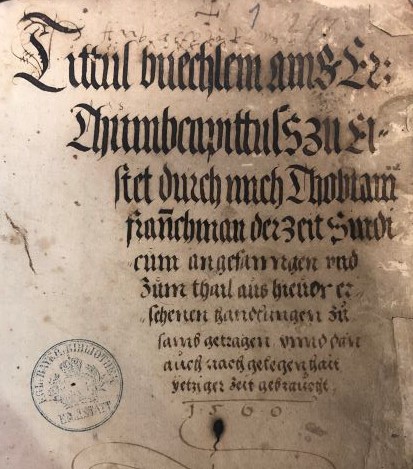 Tittul buechlein ains Er:
Thumbcapittuls zu Ei-
stet durch mich Thobiam
frañchman der Zeit Sindi
cum angefanngen vnd
Züm thail aus hieuor er-
schenen handlüngen zü
sams getragen vnnd dan
auch nach gelegenhait
yetziger Zeit gebraücht.
1560
KGL. BAYER. BIBLIOTHEK
EICHSTÄTT